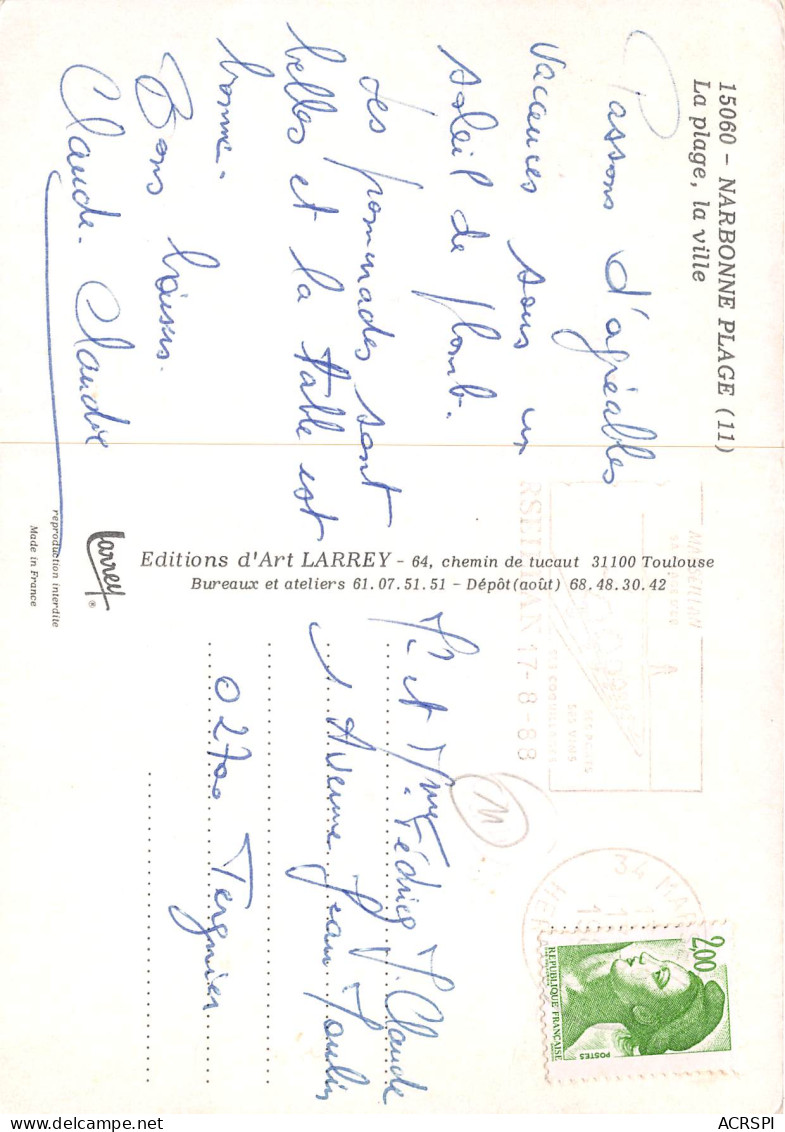 15060 - NARBONNE PLAGE (11)
La plage, la ville
Passons d'agréables
vacances sous un
soleil de plomb.
Les promenades sont
belles et la table est
bonne.
Bons baisers.
Claude. Claudie
Editions d'Art LARREY - 64, chemin de tucaut 31100 Toulouse
Bureaux et ateliers 61.07.51.51 - Dépôt(août) 68.48.30.42
Larrey
®
reproduction interdite
Made in France
MARSEILLAN
17-8-88
34 MAR
HER
2,00
REPUBLIQUE FRANÇAISE
POSTES
Mr et Mme J. Claude
1 Avenue Jean Moulin
02700 Tergnier
M
ACRSPI